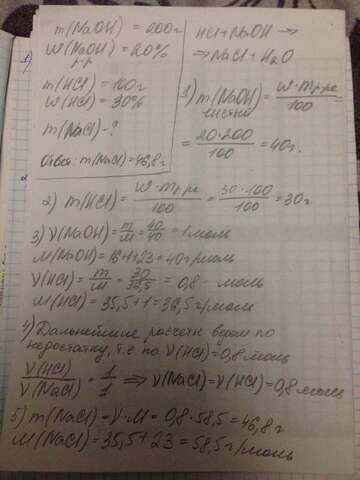 1)
m(NaOH) = 200г
W(NaOH) = 20%
р-р
m(HCl) = 100г
W(HCl) = 30%
m(NaCl) - ?
Ответ: m(NaCl)=46,8г
HCl + NaOH →
→ NaCl + H₂O
1) m(NaOH) = W · m р-ра / 100 =
чистый
= 20·200 / 100 = 40г.
2) m(HCl) = W · m р-ра / 100 = 30·100 / 100 = 30г
3) ν(NaOH) = m/M = 40/40 = 1 моль
M(NaOH) = 16+1+23 = 40г/моль
ν(HCl) = m/M = 30/36,5 = 0,8 моль
M(HCl) = 35,5+1 = 36,5г/моль
4) Дальнейшие расчеты ведем по
недостатку, т.е. по ν(HCl)=0,8моль
ν(HCl)/ν(NaCl) = 1/1 ⇒ ν(NaCl)=ν(HCl)=0,8моль
5) m(NaCl) = ν·M = 0,8·58,5 = 46,8г
M(NaCl) = 35,5+23 = 58,5г/моль